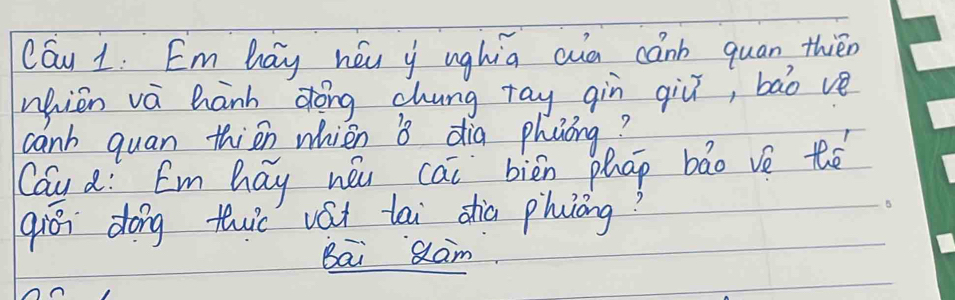 Câu 1. Em hãy nêu ý nghĩa của cảnh quan thiên
nhiên và hành động chung tay gìn giữ, bảo vệ
cảnh quan thiên nhiên ở địa phương?
Câu 2: Em hãy nêu các biện pháp bảo vệ thế
giới động thực vật tại địa phương?
Bài làm